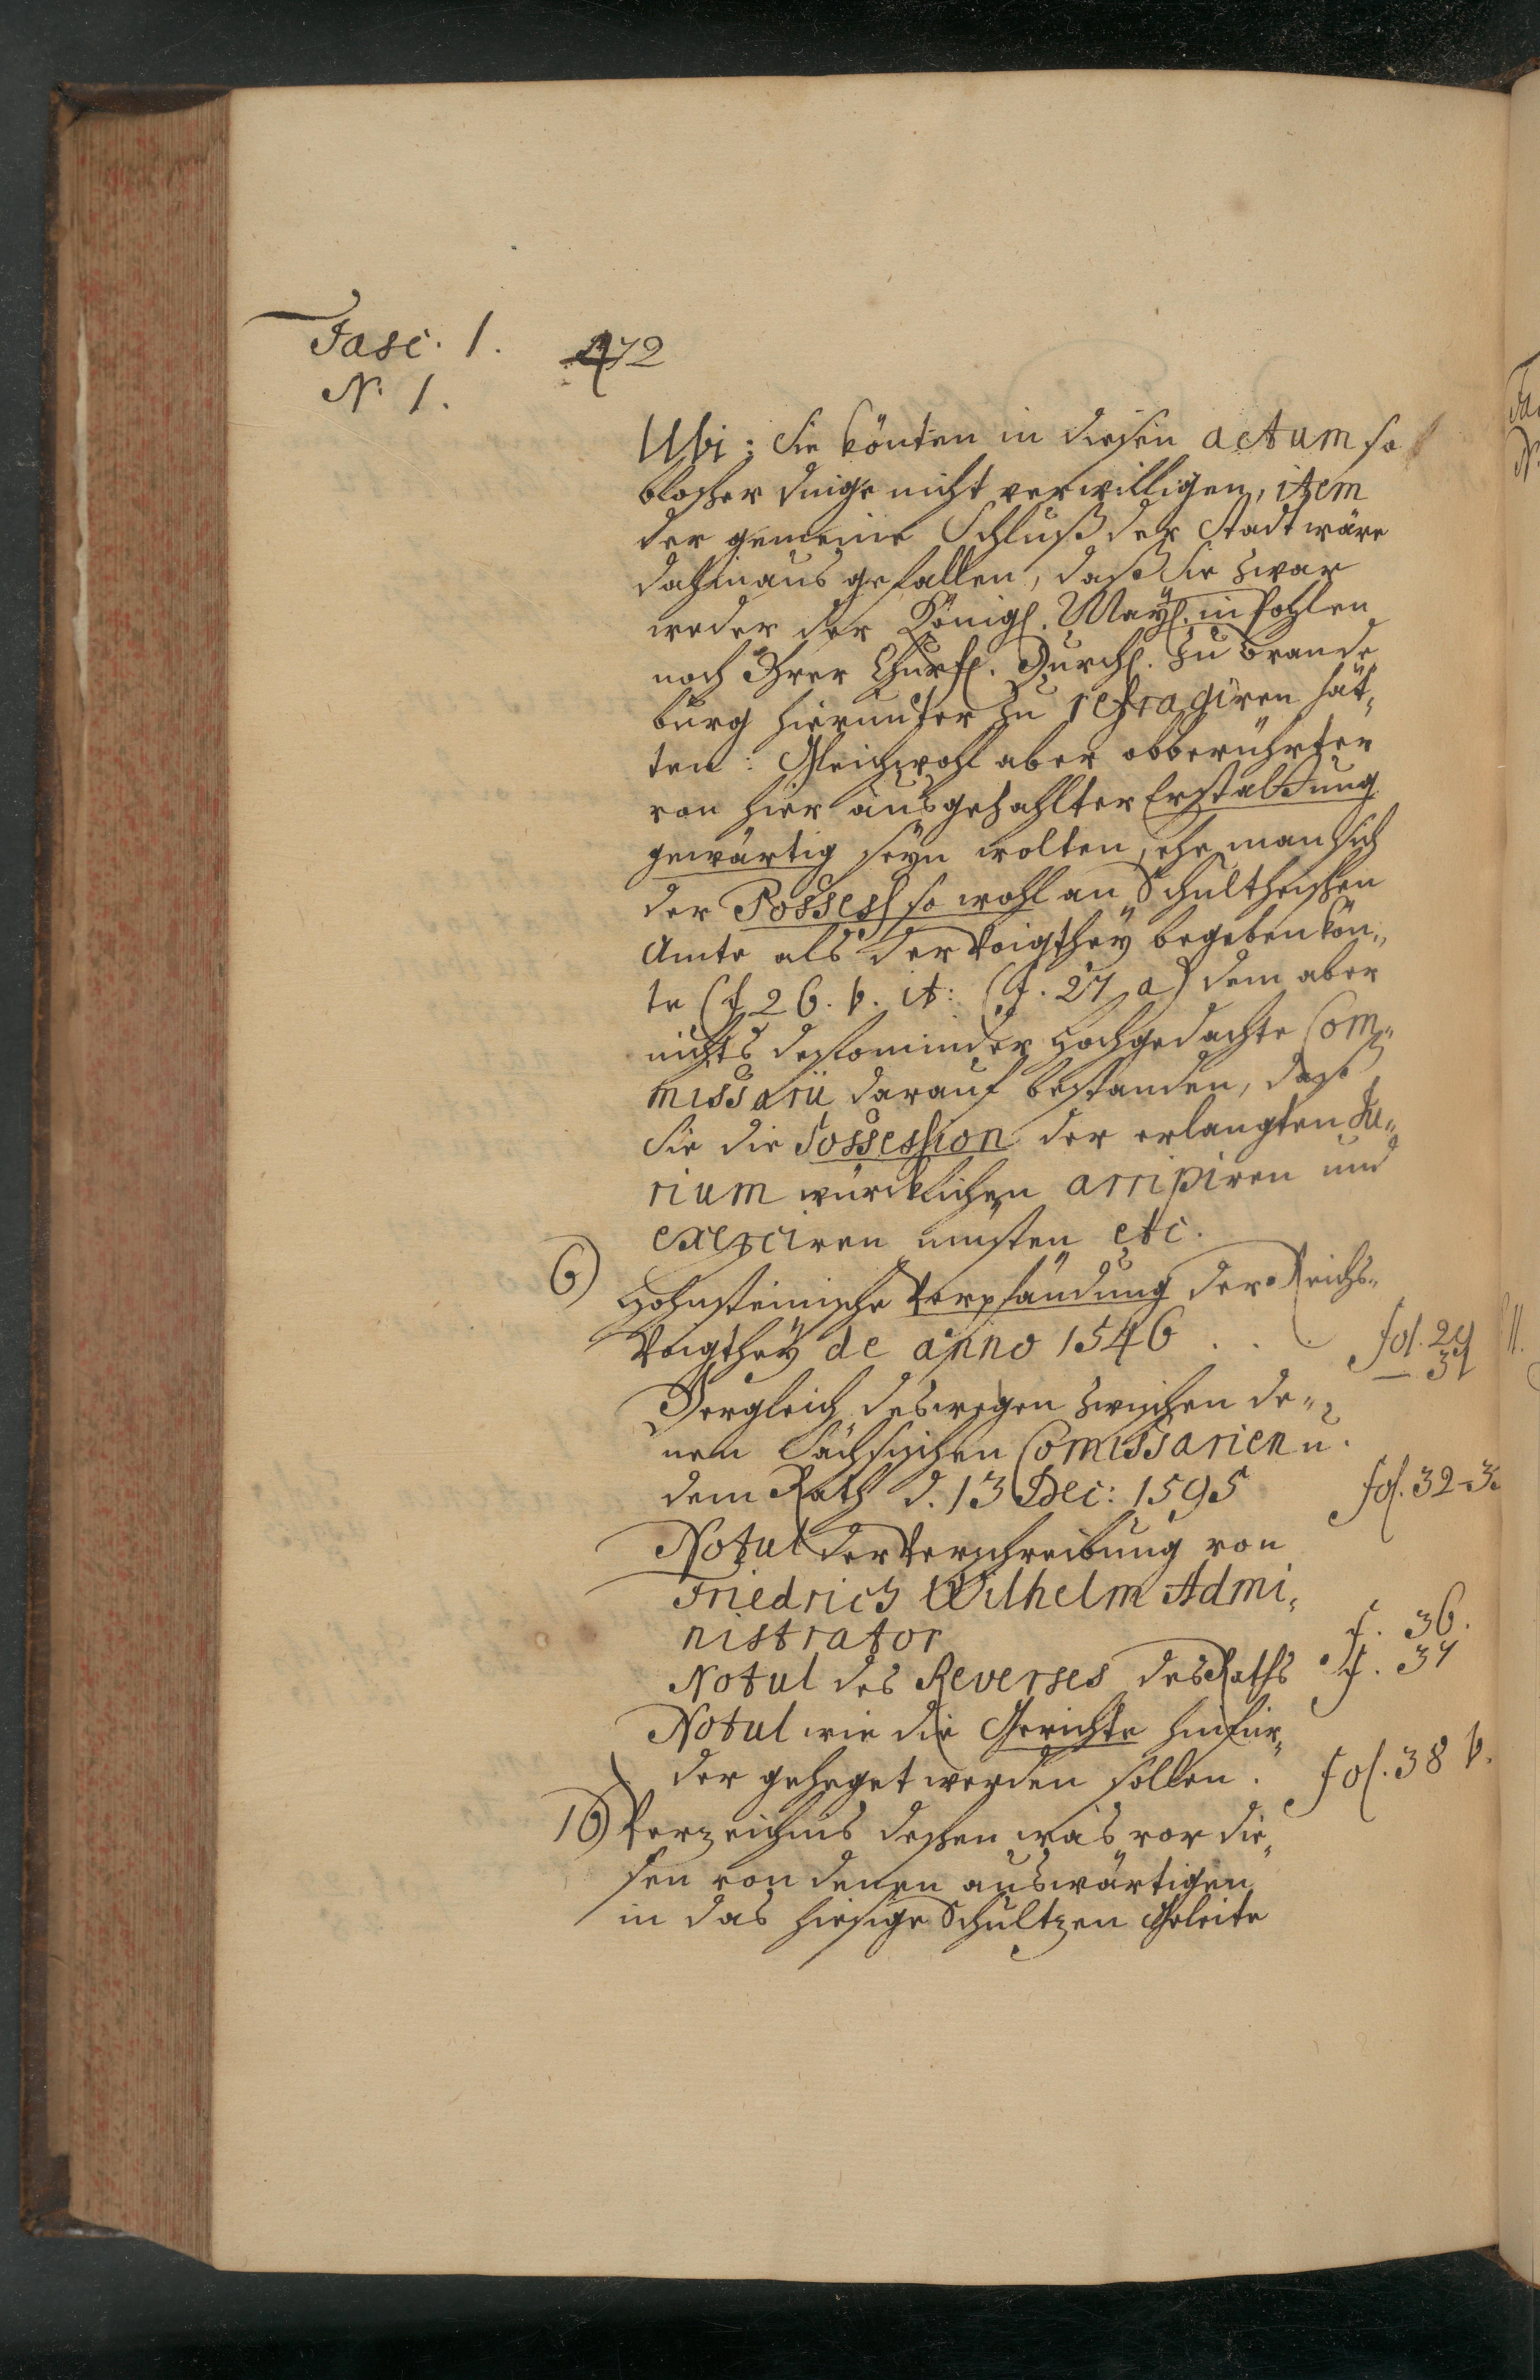 Fasc. 1.
N. 1.
472
Ubi: Sie könten in diesen actum so
bloßer dinge nicht verwilligen, item
der gemeine Schluß der Stadt wäre
dahinaus gefallen, daß Sie zwar
weder der Königl. Mayt. in Pohlen
noch Ihrer Churfl. Durchl. zu Brande
burg hierunter zu refragiren hät„
ten: Gleichwohl aber obberührter
von hier ausgezahlter Erstattung
gewärtig seyn wolten, ehe man sich
der Possess so wohl an Schultheißen
Amte als der Voigthey begeben kön„
te (f 26. b. it: (f. 27 a) dem aber
nichts destominder Hochgedachte Com„
missarii darauf bestanden, daß
Sie die Possession der erlangten Ju„
rium würcklichen arripiren und
exerciren müsten etc.
6) Hohnsteinische Verpfändung der Reichs„
Voigthey de anno 1546 . . . fol. 29
— 31
Vergleich deswegen zwischen de„
nen Sächsischen Comissarien u.
dem Rath d. 13 Dec: 1595 fol. 32-3
Notul der Verschreibung von
Friedrich Wilhelm Admi„
nistrator f. 36.
Notul des Reverses des Raths f. 37
Notul wie die Gerichte hinfür„
der geheget werden sollen. fol. 38 b.
10) Verzeichnis deßen was vor die„
sen von denen auswärtigen
in das hiesige Schultzen Geleite